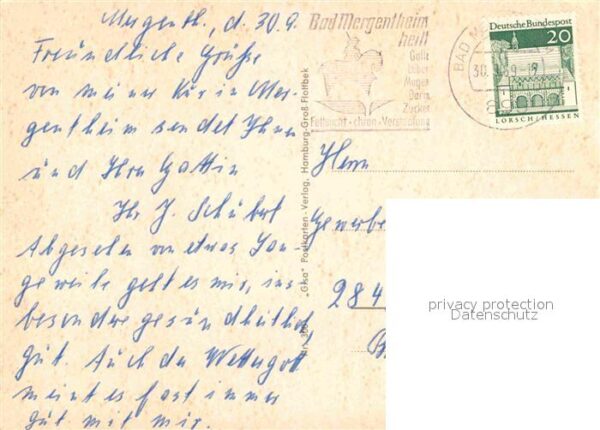 Mergenth., d. 30.9.
Freundliche Grüße
von meiner Kur in Mer-
gentheim sendet Ihnen
und Ihrer Gattin
Ihr J. Schubert
Abgesehen von etwas Lan-
geweile geht es mir, ins-
besondere gesundheitlich,
gut. Auch der Wettergott
meint es fast immer
gut mit mir.
"Gro" Postkarten-Verlag, Hamburg-Groß Flottbek
Bad Mergentheim
heilt
Galle
Leber
Magen
Darm
Zucker
Fettsucht · chron · Verstopfung
BAD
30.
Deutsche Bundespost
20
LORSCH/HESSEN
Herrn
Gewerbe
284
privacy protection
Datenschutz